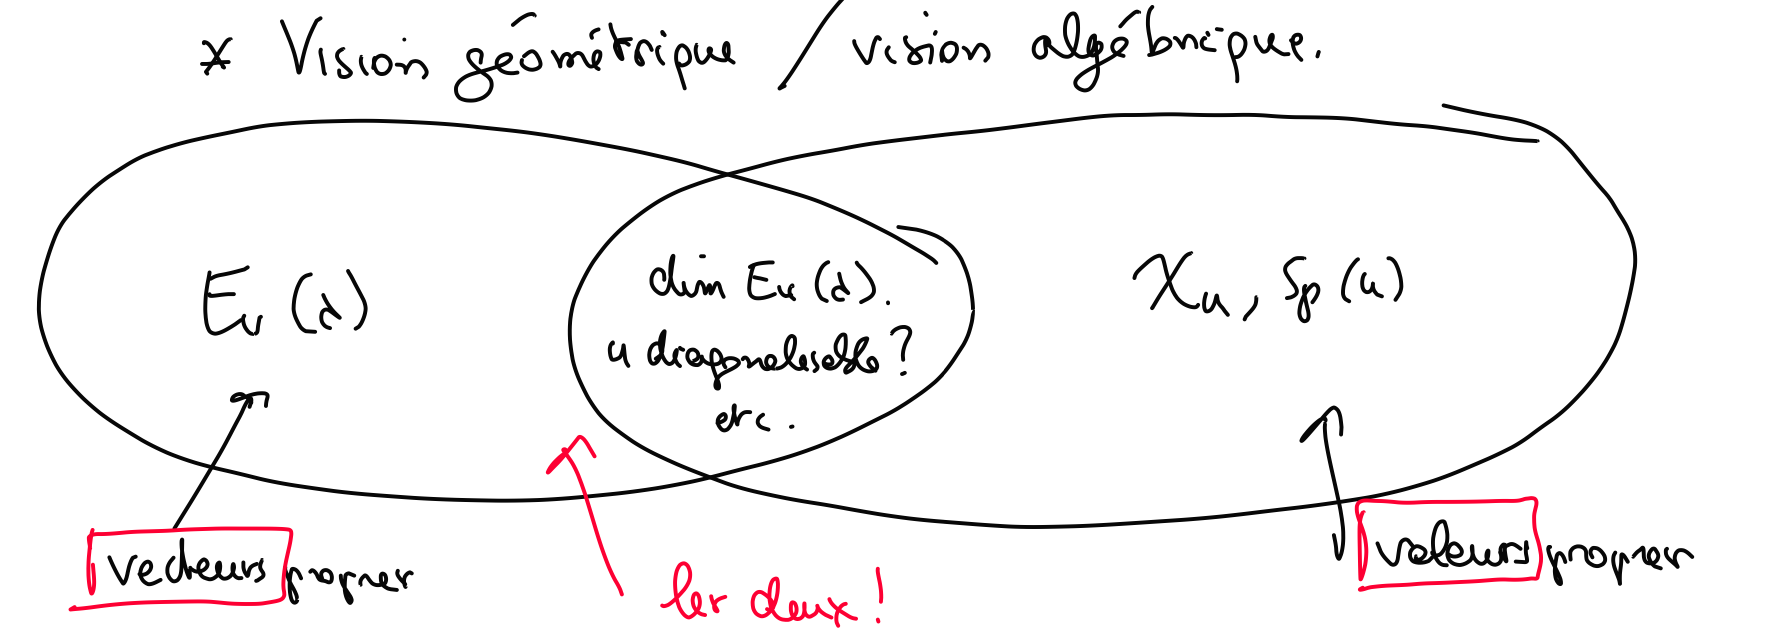 * Vision géométrique / vision algébrique.
E_u (λ)
dim E_u (λ).
u diagonalisable ?
etc.
χ_u, Sp (u)
vecteurs propres
les deux !
valeurs propres